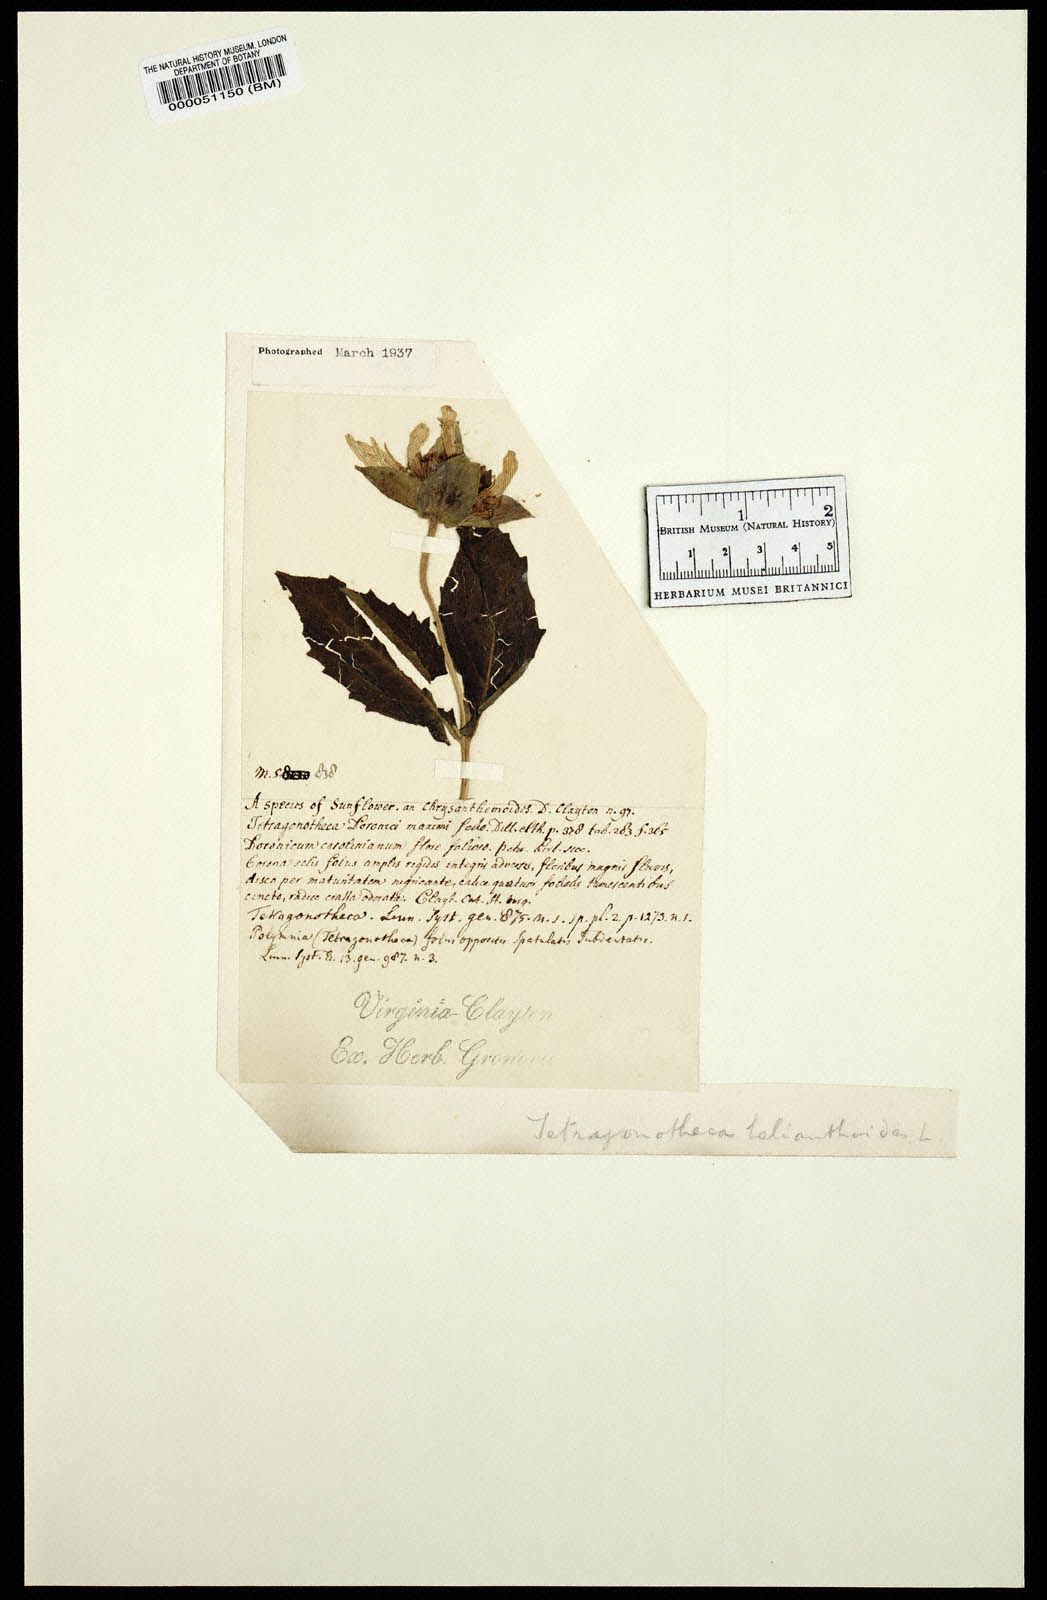 THE NATURAL HISTORY MUSEUM, LONDON
DEPARTMENT OF BOTANY
000051150 (BM)
Photographed March 1937
1 2
BRITISH MUSEUM (NATURAL HISTORY)
1 2 3 4 5
HERBARIUM MUSEI BRITANNICI
838
A species of Sunflower. an Chrysanthemoides. D. Clayton n. 97.
Tetragonotheca Doronici maximi folio. Dill. elth. p. 378 tab. 283 f. 365
Doronicum carolinianum flore folioso. Petiv. sicc.
Corona solis foliis amplis rigidis integris adversis, floribus magnis flavis,
disco per maturitatem nigricante, calice quatuor foliolis
cincto, radice crassa odorata. Clayt.
Tetragonotheca. Linn. Syst. gen. 875. n. 1. sp. pl. 2. p. 1273. n. 1.
Polymnia (Tetragonotheca) foliis oppositis spatulatis subdentatis.
Linn. Syst. 13. gen. 987. n. 3.
Virginia - Clayton
Ex. Herb. Gronov
Tetragonotheca helianthoides L.